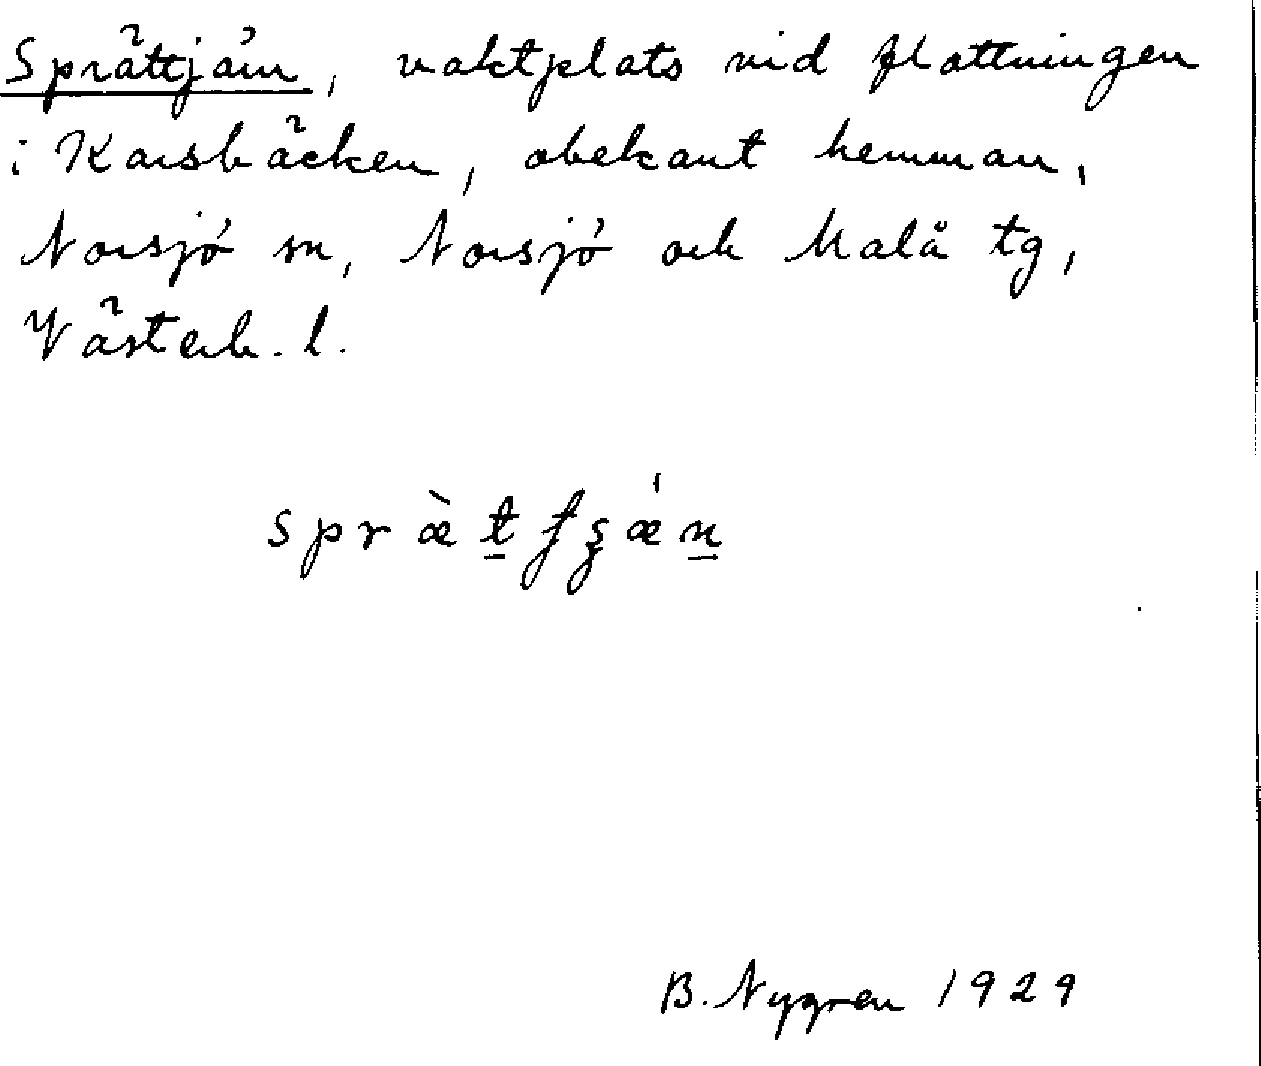 Sprättjärn, vaktplats vid flottningen
i Korsbäcken, obekant hemman,
Norsjö sn, Norsjö och Malå tg,
Västerb. l.
B. Nygren 1929